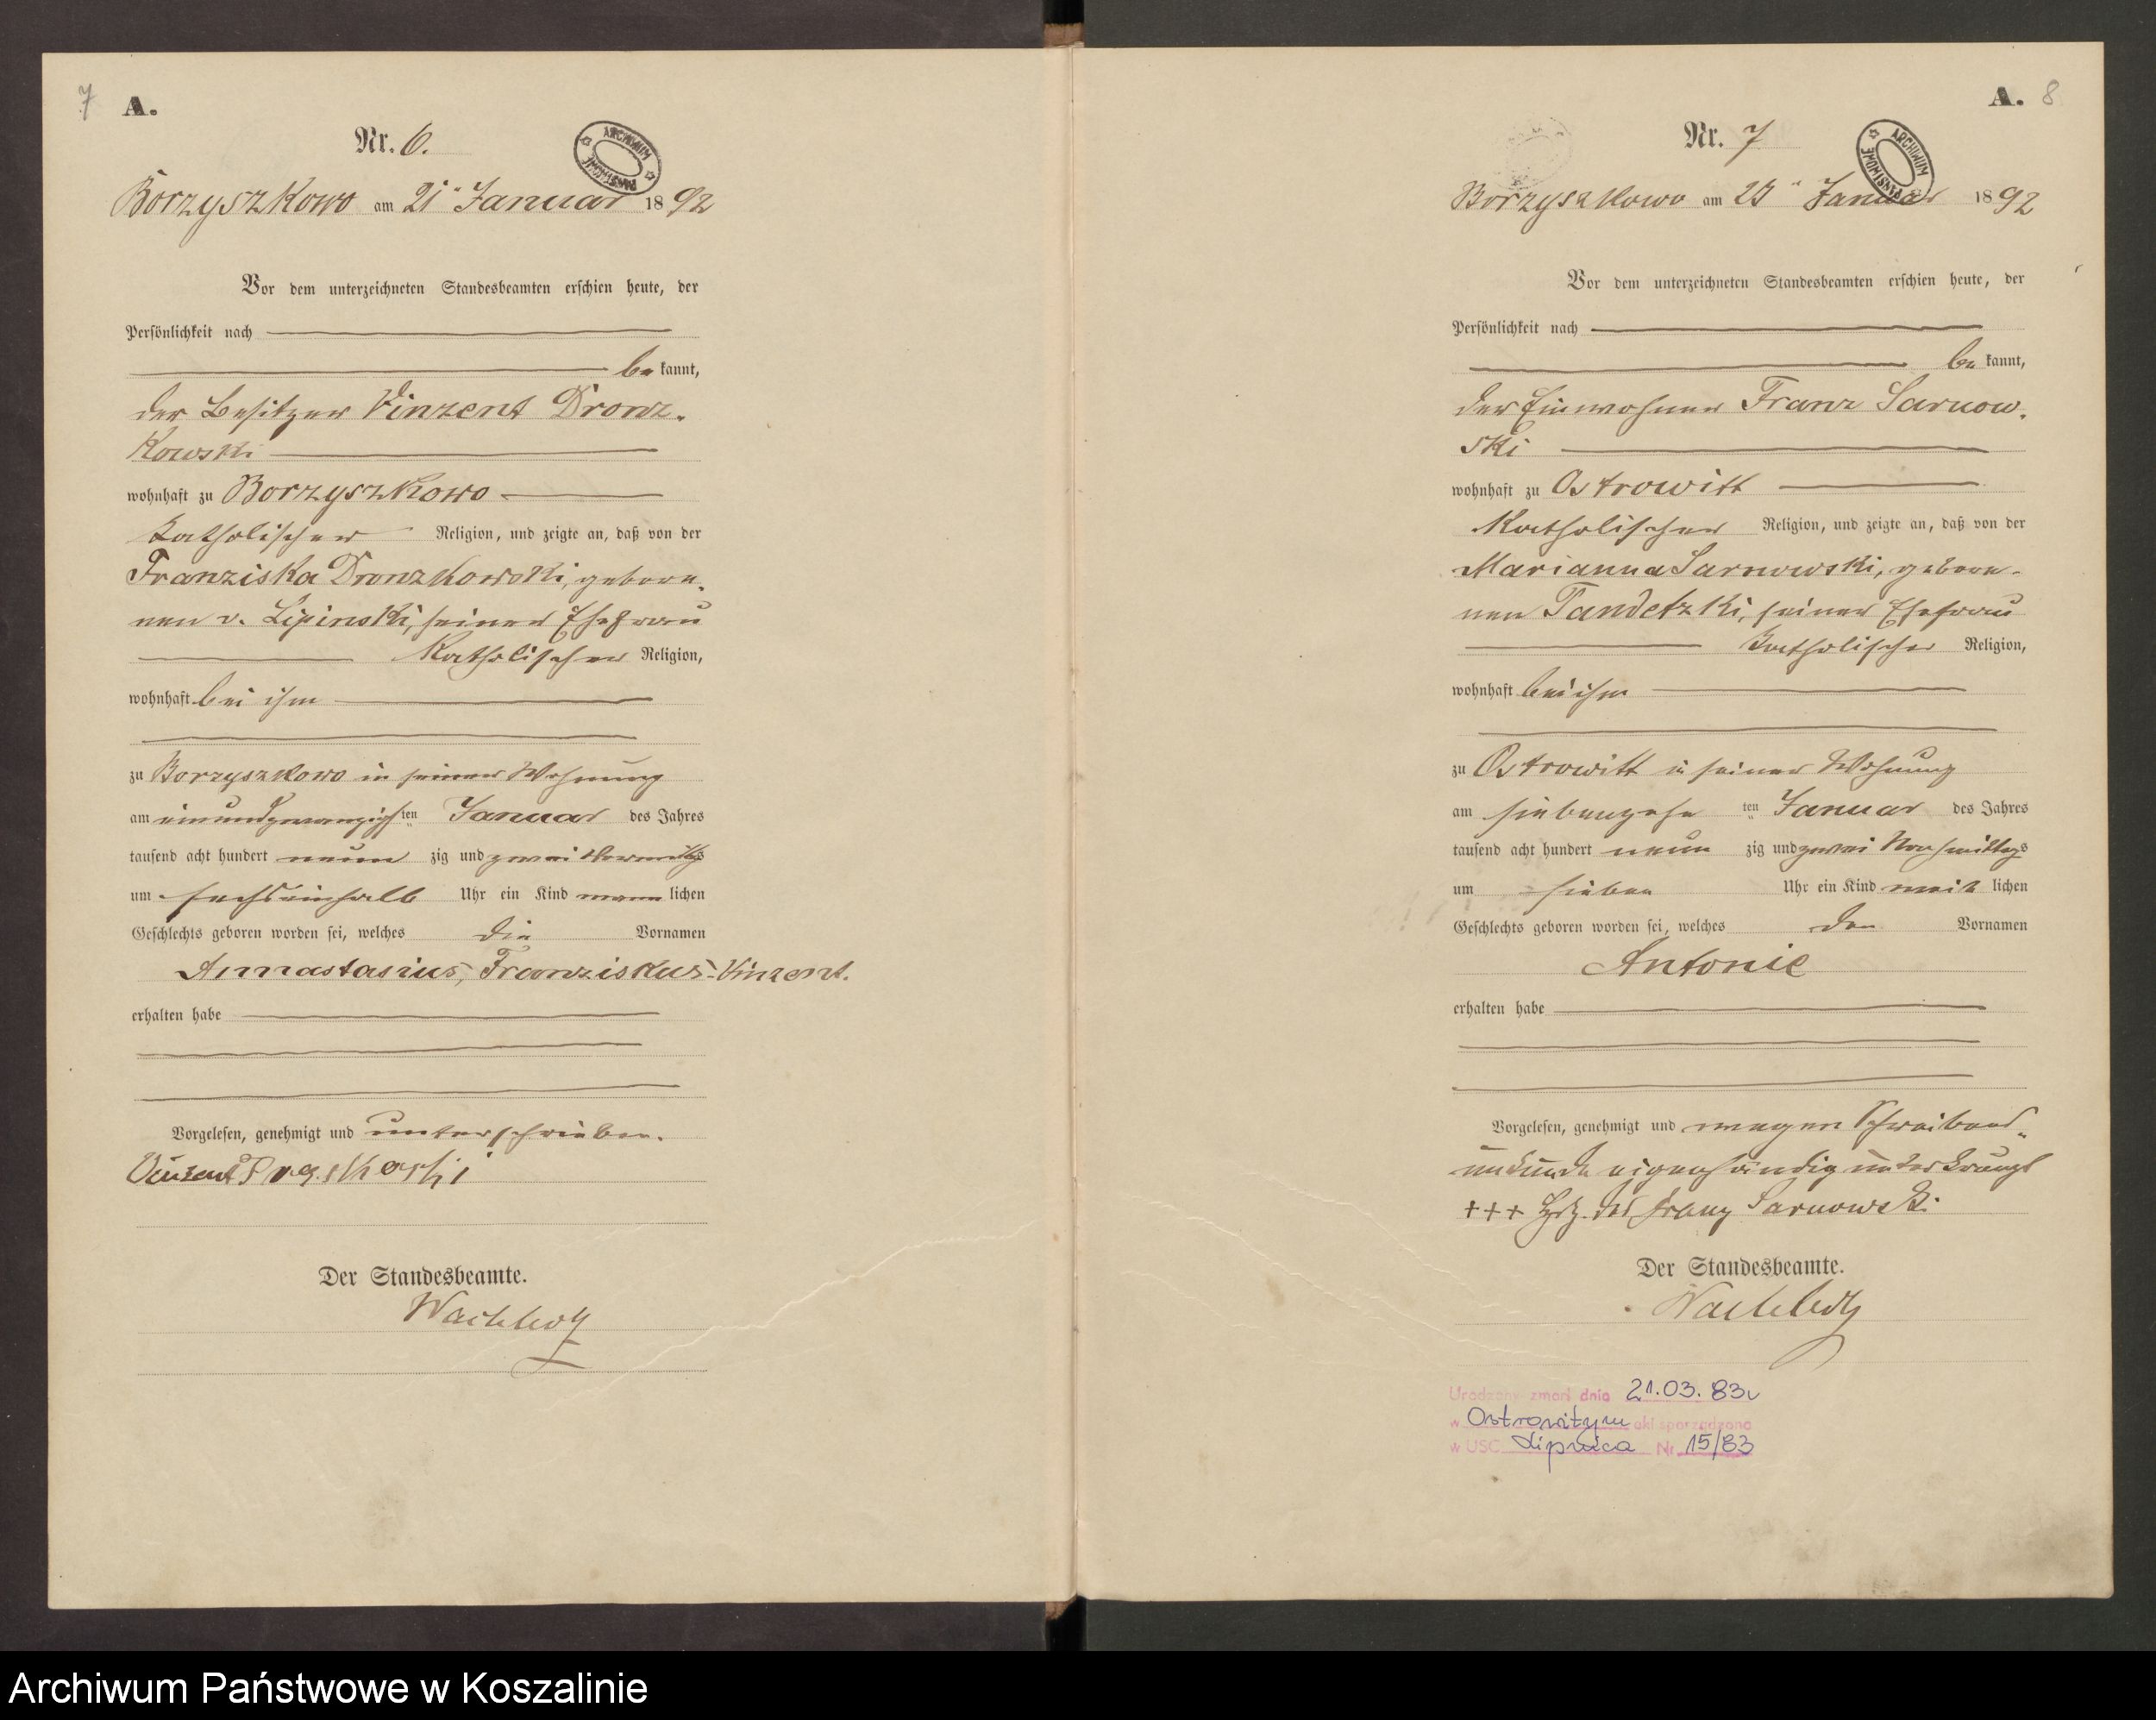 7 A.
Nr. 6.
ARCHIWUM PAŃSTWOWE
Borzyszkowo am 21" Januar 1892
Vor dem unterzeichneten Standesbeamten erschien heute, der
Persönlichkeit nach
be kannt,
der Besitzer Vinzent Dronz-
kowski
wohnhaft zu Borzyszkowo
katholischer Religion, und zeigte an, daß von der
Franziska Dronzkowski, gebore-
nen v. Lipinski, seiner Ehefrau
katholischer Religion,
wohnhaft bei ihm
zu Borzyszkowo in seiner Wohnung
am einundzwanzigsten Januar des Jahres
tausend acht hundert neun zig und zwei Vormittags
um sechseinhalb Uhr ein Kind männ lichen
Geschlechts geboren worden sei, welches die Vornamen
Annastasius, Franziskus-Vinzent.
erhalten habe
Vorgelesen, genehmigt und unterschrieben.
Vinzent
Der Standesbeamte.
A. 8
Nr. 7
ARCHIWUM PAŃSTWOWE
Borzyszkowo am Januar 1892
Vor dem unterzeichneten Standesbeamten erschien heute, der
Persönlichkeit nach
be kannt,
der Einwohner Franz Sarnow-
ski
wohnhaft zu Ostrowitt
katholischer Religion, und zeigte an, daß von der
Marianna Sarnowski, gebore-
nen Tandetzki, seiner Ehefrau
katholischer Religion,
wohnhaft bei ihm
zu Ostrowitt in seiner Wohnung
am siebenzehn ten Januar des Jahres
tausend acht hundert neun zig und zwei Nachmittags
um sieben Uhr ein Kind weib lichen
Geschlechts geboren worden sei, welches den Vornamen
Antonie
erhalten habe
Vorgelesen, genehmigt und wegen Schreibens-
unkunde eigenhändig unterkreuzt
+++ Hdz. des Franz Sarnowski
Der Standesbeamte.
Urodzony zmarł dnia 21.03.83r
w Ostrowitym akt sporządzono
w USC Lipnica Nr 15/83
Archiwum Państwowe w Koszalinie